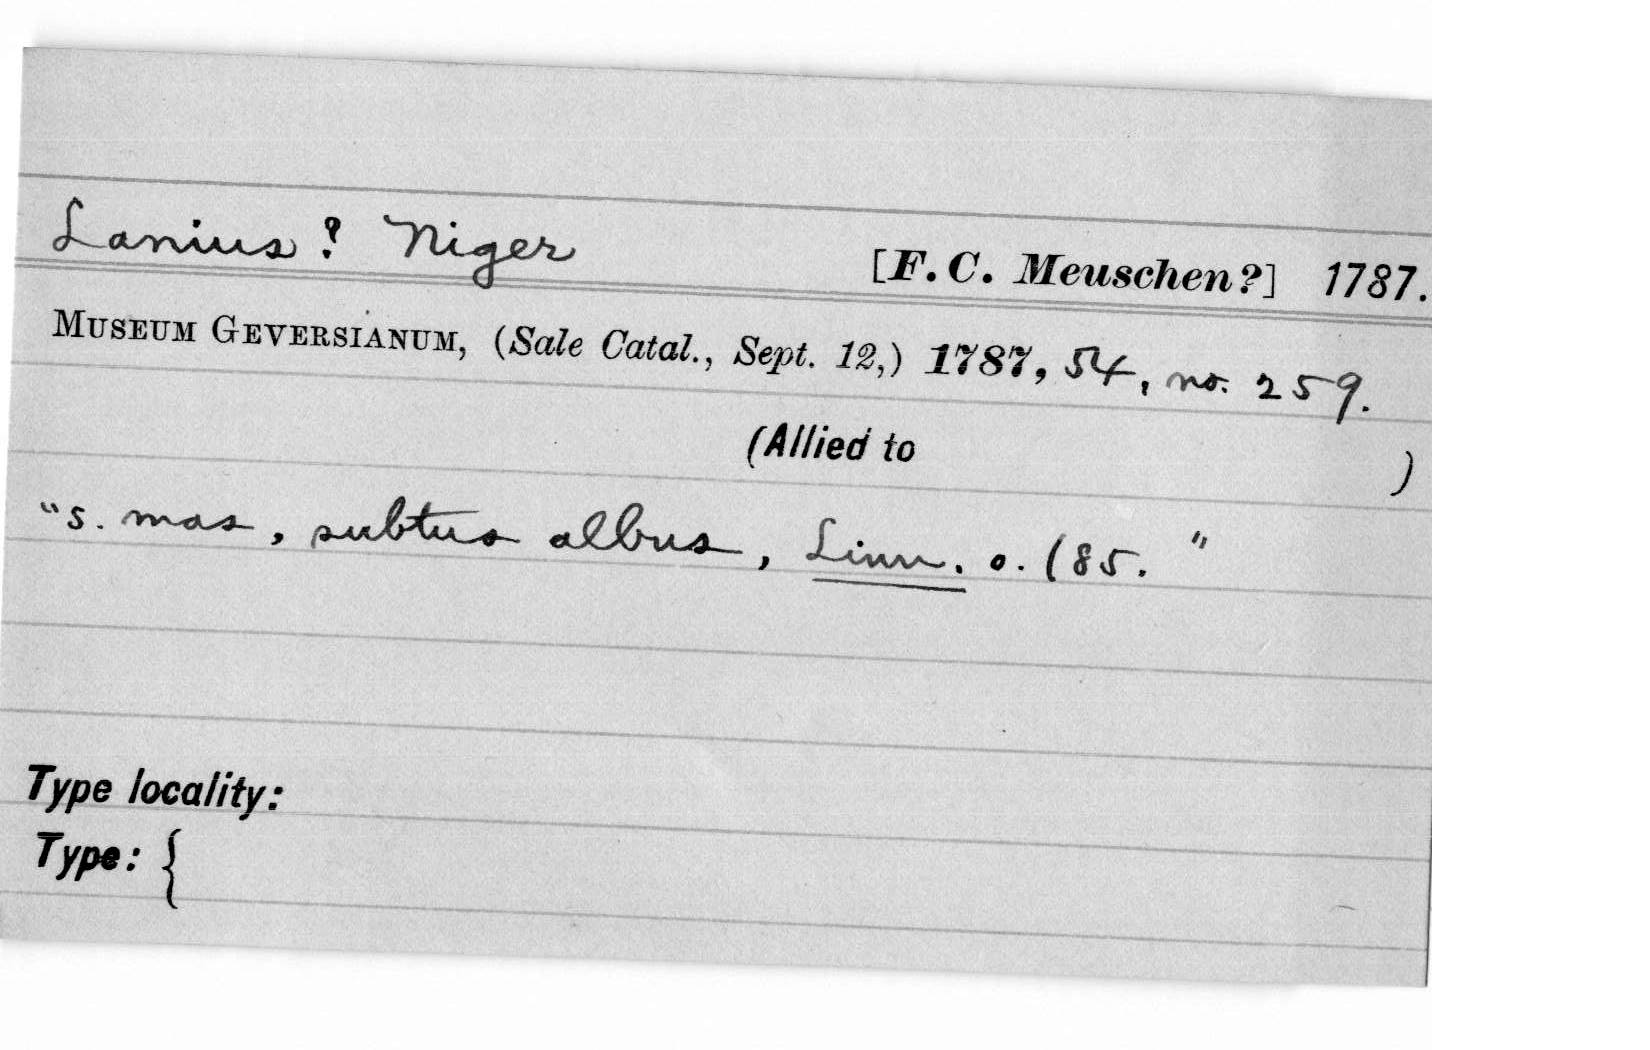 Lanius? Niger [F. C. Meuschen?] 1787.
Museum Geversianum, (Sale Catal., Sept. 12,) 1787, 54, no. 259.
(Allied to )
"s. mas, subtus albus, Linn. o. (85. "
Type locality:
Type: {